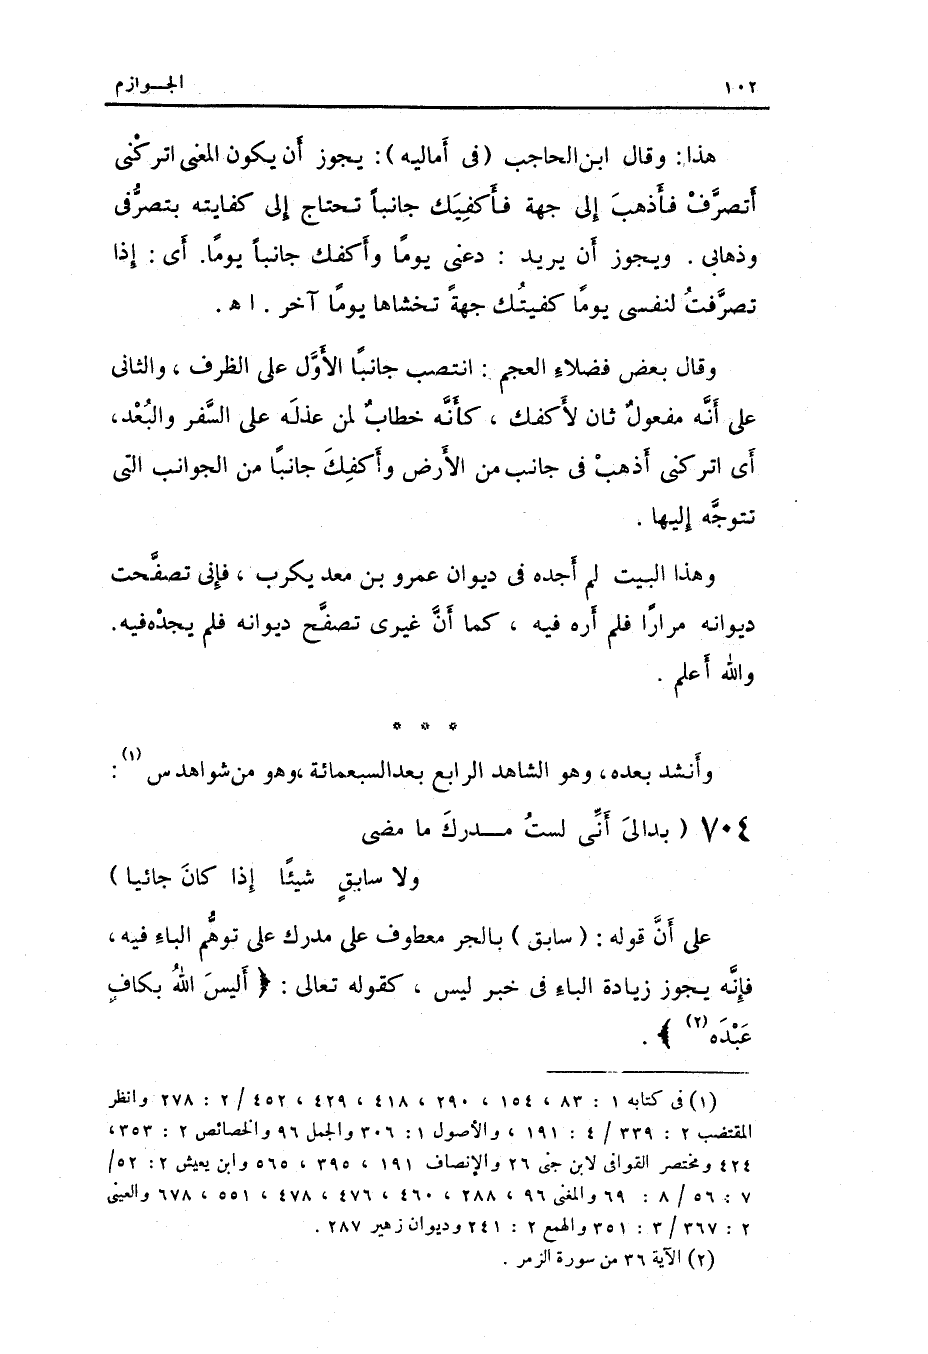 ١٠٢ الجـوازم
هذا: وقال ابن الحاجب (فى أماليه): يجوز أن يكون المعنى اتركْنى
أتصرَّفْ فأذهبَ إلى جهة فأكفِيَك جانباً تحتاج إلى كفايته بتصرُّفى
وذهابى . ويجوز أن يريد : دعنى يومًا وأكفك جانباً يومًا. أى : إذا
تصرَّفتُ لنفسى يومًا كفيتُك جهةً تخشاها يومًا آخر . ا ه .
وقال بعض فضلاء العجم : انتصب جانبًا الأوَّل على الظرف ، والثانى
على أنَّه مفعولٌ ثان لأكفك ، كأنَّه خطابٌ لمن عذلَه على السَّفر والبُعْد،
أى اتركنى أذهبْ فى جانب من الأرض وأكفِكَ جانبًا من الجوانب التى
تتوجَّه إليها .
وهذا البيت لم أجده فى ديوان عمرو بن معد يكرب ، فإنى تصفَّحت
ديوانه مرارًا فلم أره فيه ، كما أنَّ غيرى تصفَّح ديوانه فلم يجدْه فيه.
والله أعلم .
* * *
وأنشد بعده، وهو الشاهد الرابع بعد السبعمائة ،وهو من شواهد س (١) :
٧٠٤ ( بدالىَ أنِّى لستُ مــدركَ ما مضى
ولا سابقٍ شيئًا إذا كانَ جائيا )
على أنَّ قوله : ( سابق ) بالجر معطوف على مدرك على توهُّم الباء فيه ،
فإنَّه يجوز زيادة الباء فى خبر ليس ، كقوله تعالى : ﴿ أليسَ اللهُ بكافٍ
عَبْدَه (٢) ﴾ .
(١) فى كتابه ١ : ٨٣ ، ١٥٤ ، ٢٩٠ ، ٤١٨ ، ٤٢٩ ، ٤٥٢ / ٢ : ٢٧٨ وانظر
المقتضب ٢ : ٣٣٩ / ٤ : ١٩١ ، والأصول ١ : ٣٠٦ والجمل ٩٦ والخصائص ٢ : ٣٥٣ ،
٤٢٤ ومختصر القوافى لابن جنى ٢٦ والإنصاف ١٩١ ، ٣٩٥ ، ٥٦٥ وابن يعيش ٢ : ٥٢ /
٧ : ٥٦ / ٨ : ٦٩ والمغنى ٩٦ ، ٢٨٨ ، ٤٦٠ ، ٤٧٦ ، ٤٧٨ ، ٥٥١ ، ٦٧٨ والعينى
٢ : ٣٦٧ / ٣ : ٣٥١ والهمع ٢ : ٢٤١ وديوان زهير ٢٨٧ .
(٢) الآية ٣٦ من سورة الزمر .